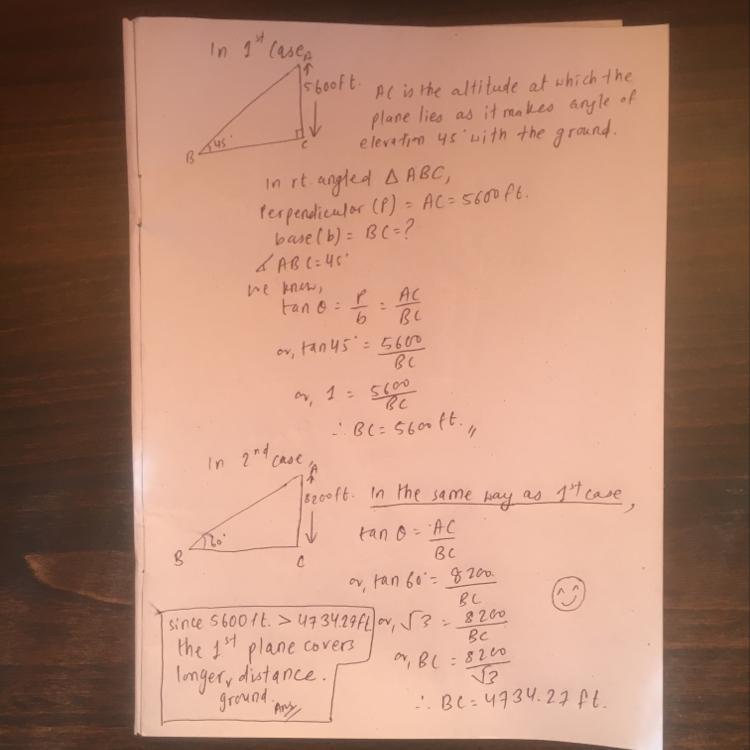 In 1st Case,
A
5600ft.
45°
B
C
AC is the altitude at which the
plane lies as it makes angle of
elevation 45° with the ground.
In rt. angled Δ ABC,
Perpendicular (P) = AC = 5600 ft.
base (b) = BC = ?
∡ ABC = 45°
we know,
tan θ = P/b = AC/BC
or, tan 45° = 5600/BC
or, 1 = 5600/BC
∴ BC = 5600 ft.
In 2nd case,
A
8200ft.
60°
B
C
In the same way as 1st case,
tan θ = AC/BC
or, tan 60° = 8200/BC
or, √3 = 8200/BC
or, BC = 8200/√3
∴ BC = 4734.27 ft.
since 5600ft. > 4734.27ft
the 1st plane covers
longer distance.
ground. Ans